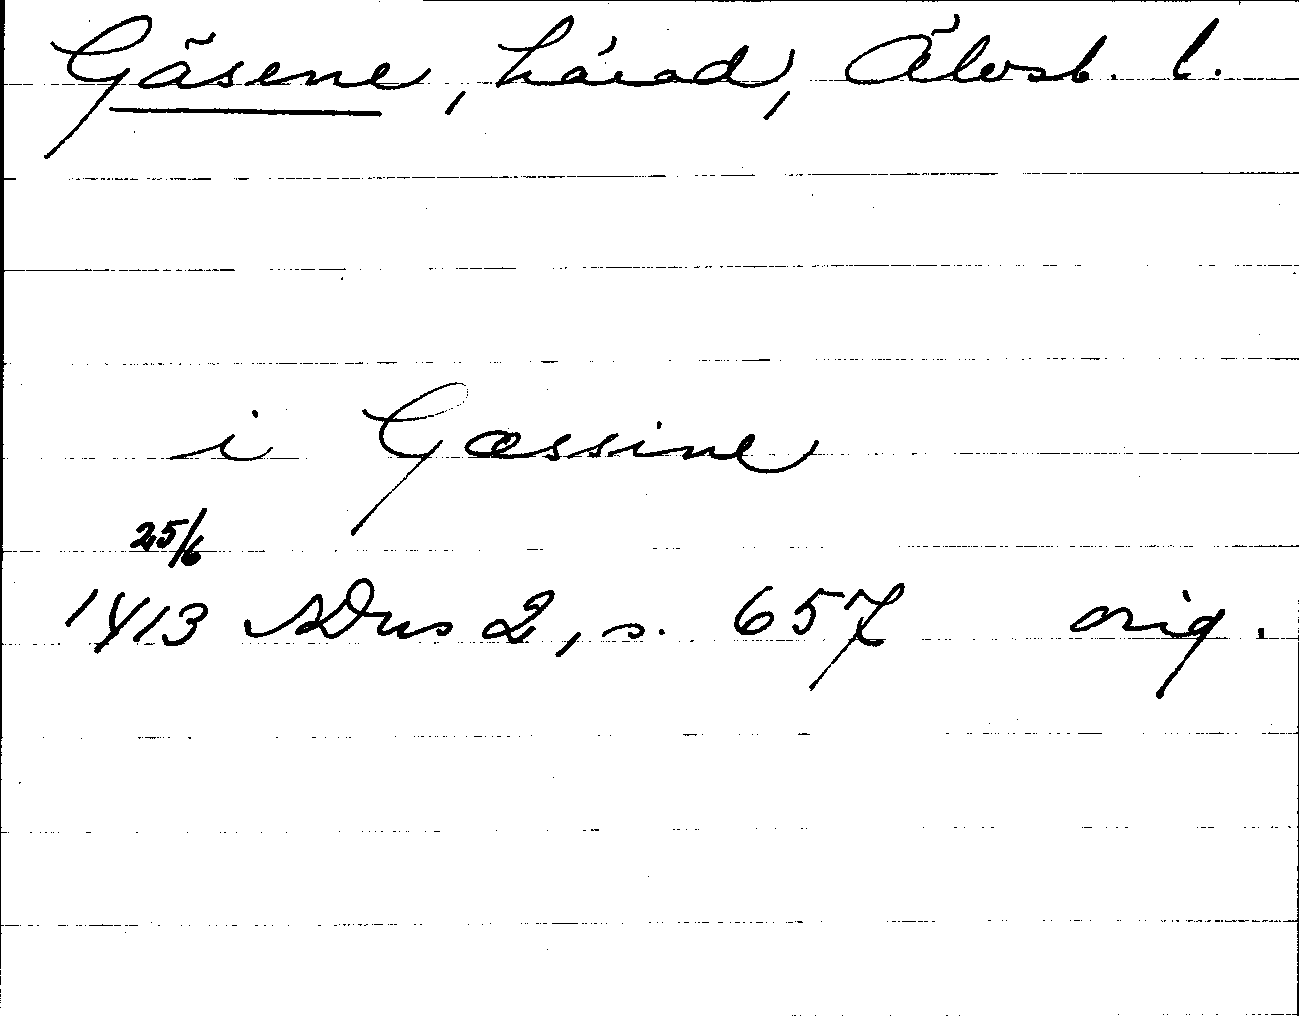 Gäsene, härad, Älvsb. l.
i Gæssine
25/6
1413 SDns 2, s. 657 orig.